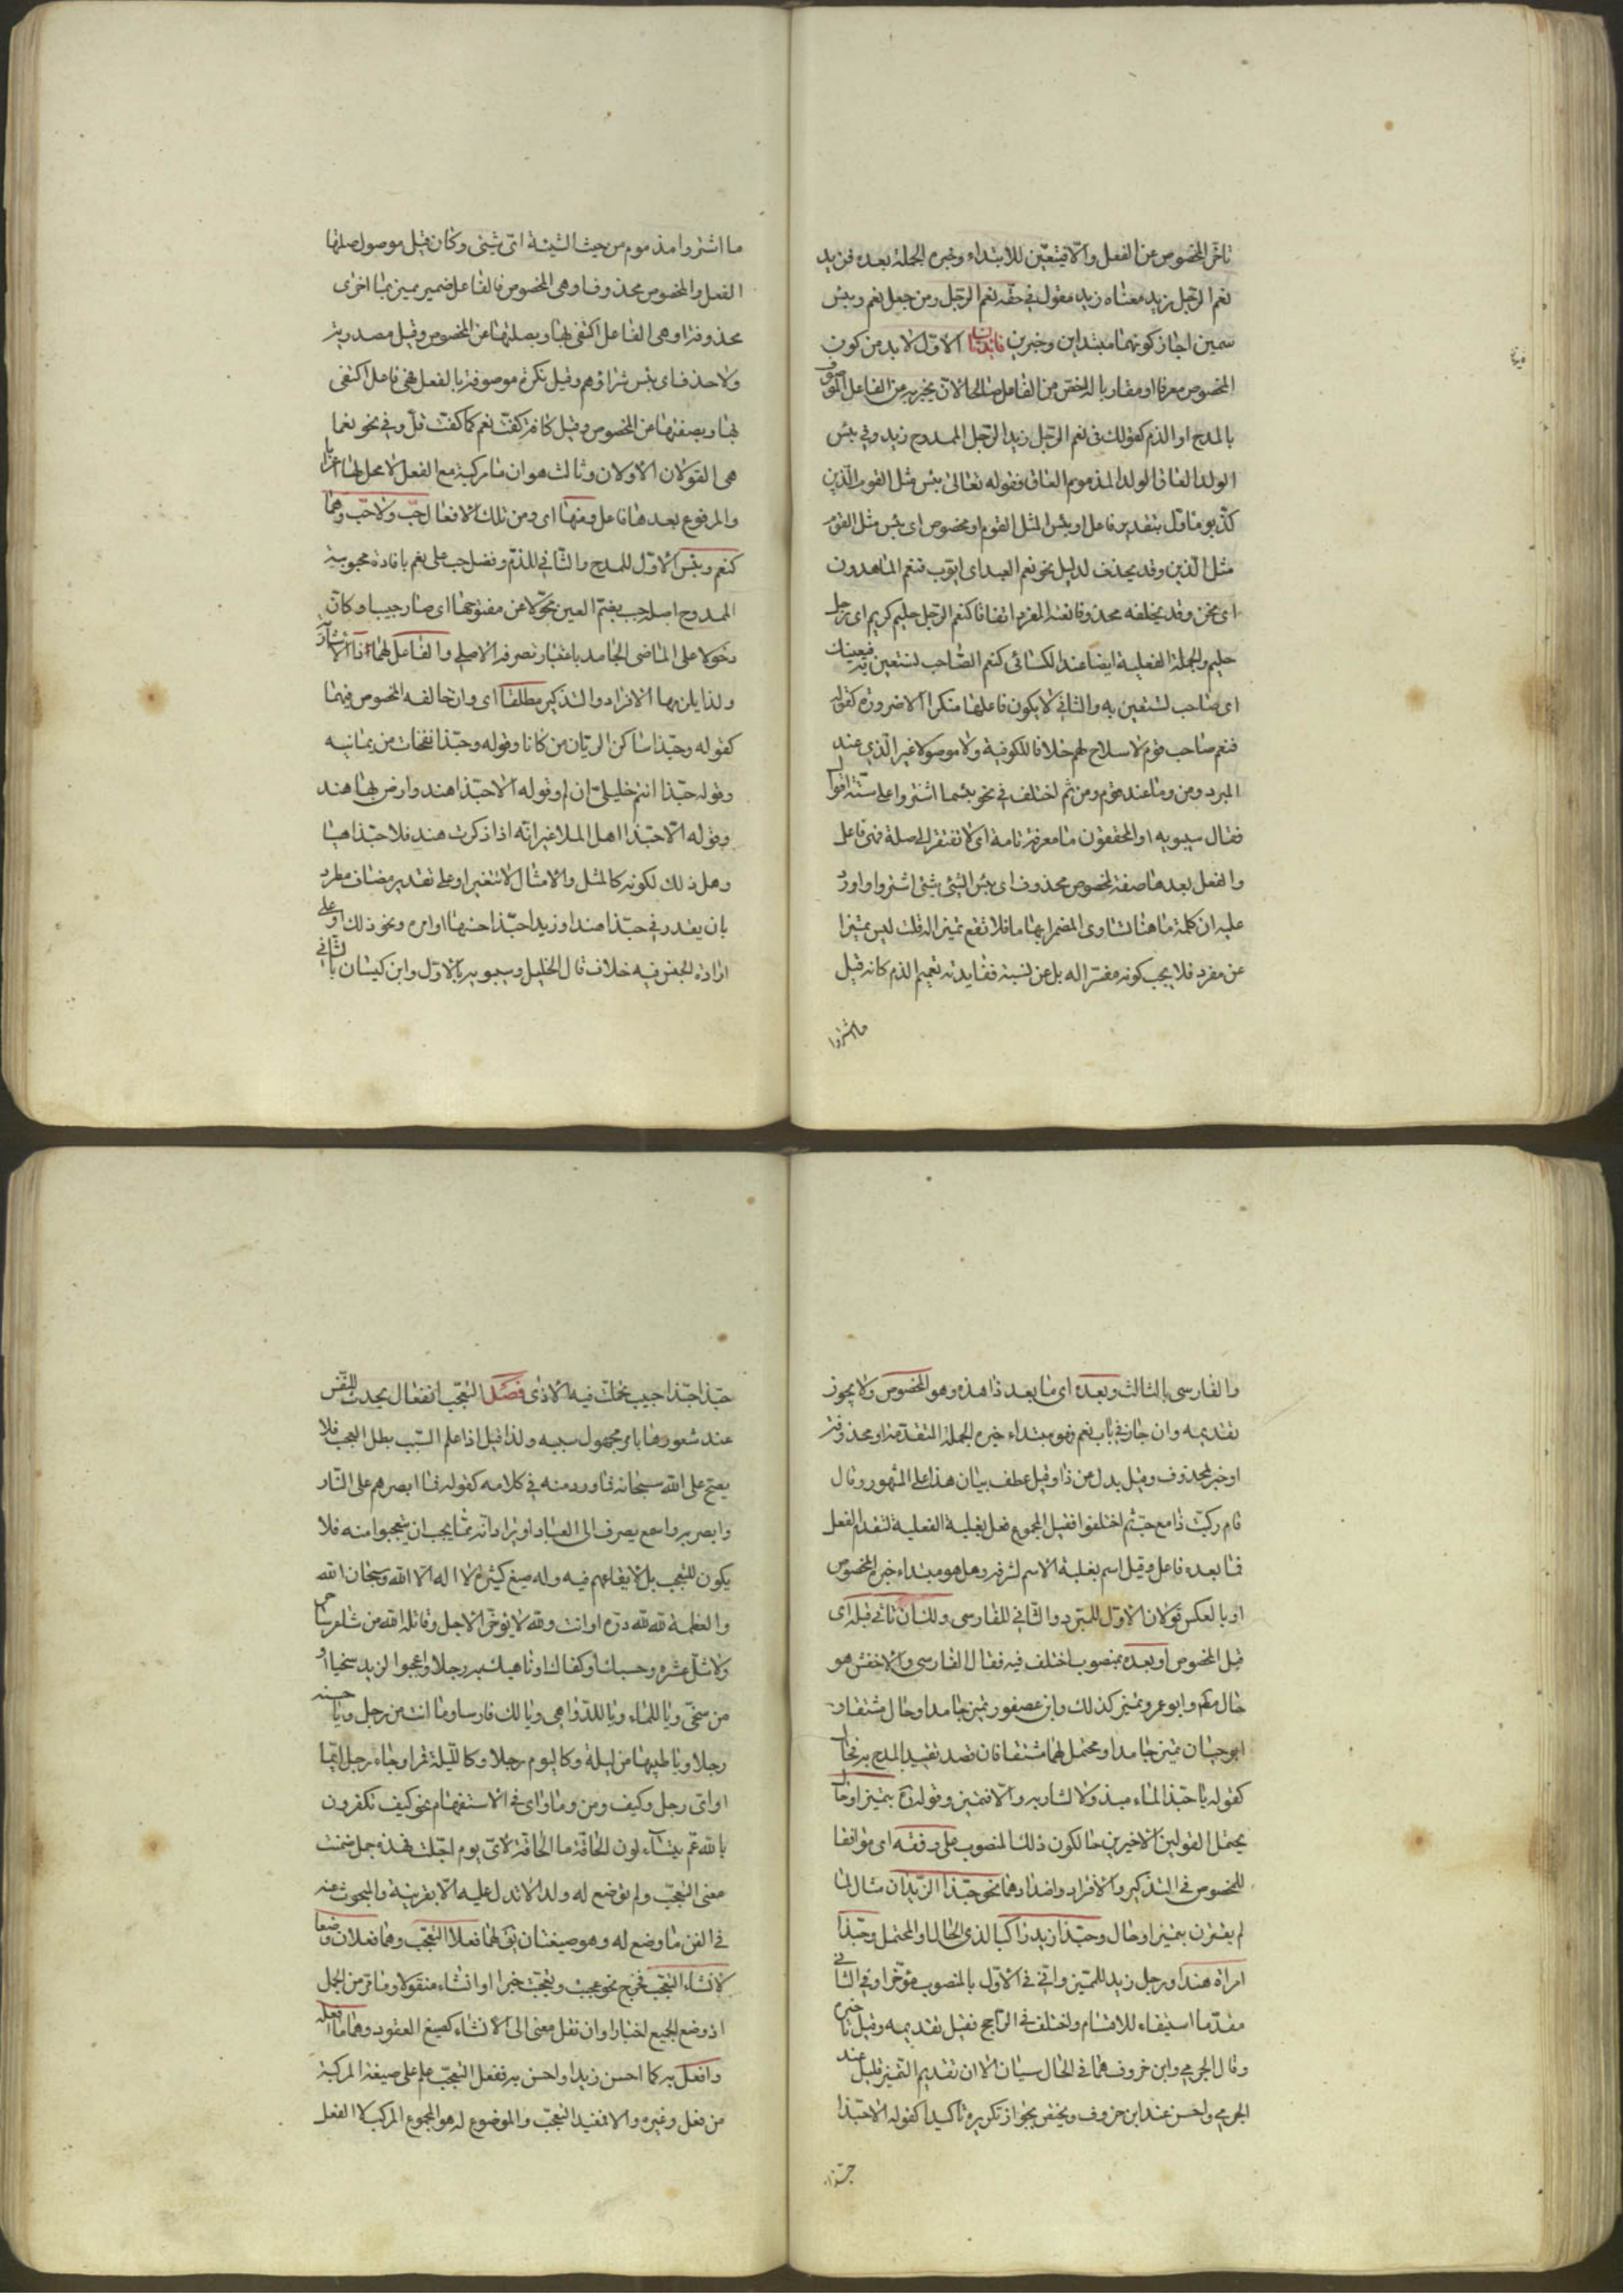 تاخر المخصوص عن الفعل والا فيتعين للابتداء وخبره الجملة بعده فزيد
نعم الرجل زيد معناه زيد مقول في حقه نعم الرجل ومن جعل نعم وبئس
سمين اجاز كونهما مبتداين وخبرين فائدتان الاول لا بد من كون
المخصوص معرفا او مقاربا له اخص من الفاعل صالحا لان يخبر به عن الفاعل الموصوف
بالمدح او الذم كقولك في نعم الرجل زيد الرجل الممدوح زيد وفي بئس
الولد العاق الولد المذموم العاق فقوله تعالى بئس مثل القوم الذين
كذبوا ماول بتقدير فاعل او بئس المثل القوم او مخصوص اى بئس مثل القوم
مثل الذين وقد يحذف لدليل نحو نعم العبد اى ايوب فنعم الماهدون
اى نحن وقد يخلفه محذوفا نعته المفرد اتفاقا كنعم الرجل حليم كريم اى رجل
حليم والجملة الفعلية ايضا عند الكسائى كنعم الصاحب تستعين به فيعينك
اى صاحب تستعين به والثاني لا يكون فاعلها منكرا الا ضرورة كقوله
فنعم صاحب قوم لا سلاح لهم خلافا للكوفية ولا موصولا غير الذي عند
المبرد ومن وما عند قوم ومن ثم اختلف في نحو بئسما اشتروا على ستة اقوال
فقال سيبويه او المحققون ما معرفة تامة اى لا تفتقر الى صلة فهى فاعل
والفعل بعدها صفة لمخصوص محذوف اى بئس الشئ شئ اشتروا واورد
عليه ان كلمة ما هنا تساوى المضمر ابهاما فلا تقع تميزا له قلت ليس تميزا
عن مفرد فلا يجب كونه مفسرا له بل عن نسبة ففايدته تعميم الذم كانه قيل
ما اشتروا
ما اشتروا مذموم من حيث الشيئية اى شئ وكان قيل موصول صلتها
الفعل والمخصوص محذوف او هى المخصوص فالفاعل ضمير مميز بما اخرى
محذوفة او هى الفاعل اكتفى بها وبصلتها عن المخصوص وقيل مصدرية
ولا حذف اى بئس شراؤهم وقيل نكرة موصوفة بالفعل فهى فاعل اكتفى
بها وبصفتها عن المخصوص وقيل كافة كفت نعم كما كفت قل وفي نحو نعما
هى القولان الاولان وثالث هو ان ما مركبة مع الفعل لا محل لها اعرابا
والمرفوع بعدها فاعل ومنها اى ومن تلك الافعال حب ولا حب وهما
كنعم وبئس الاول للمدح والثاني للذم وفضل حب على نعم بافادة محبوبية
الممدوح اصله حبب بضم العين محولا عن مفتوحها اى صار حبيبا وكان
دخولا على الماضى الجامد باعتبار تصرفه الاصلى والفاعل لهما ذا الاشارة
ولذا يلزمها الافراد والتذكير مطلقا اى وان خالفه المخصوص فيهما
كقوله وحبذا ساكن الريان من كانا وقوله وحبذا نفحات من يمانيه
وقوله حبذا انتم خليلى ان لم وقوله الا حبذا هند وارض بها هند
وقوله الا حبذا اهل الملا غير انه اذا ذكرت هند فلا حبذا هيا
وهل ذلك لكونه كالمثل والامثال لا تتغير او على تقدير مضاف مطرد
بان يقدر في حبذا هند او زيد احبذا حسنها او امره ونحو ذلك او على
ارادة الجنس فيه خلاف قال الخليل وسيبويه بالاول وابن كيسان بالثاني
والفارسى بالثالث وبعده اى ما بعد ذا هذه وهو المخصوص ولا يجوز
تقديمه وان جاز في باب نعم فهو مبتداء خبره الجملة المتقدمة او محذوفة
او خبر لمحذوف وقيل بدل من ذا وقيل عطف بيان هذا على المشهور وقال
قام ركبت ذا مع حب ثم اختلفوا فقيل المجموع فعل بغلبة الفعلية لتقدم الفعل
فما بعده فاعل وقيل اسم بغلبة الاسم لشرفه وهل هو مبتداء خبره المخصوص
او بالعكس قولان الاول للمبرد والثاني للفارسى وللسان ثانى قبله اى
قبل المخصوص او بعده بمنصوب اختلف فيه فقال الفارسى والاخفش هو
حال مكم وابو عمرو تميز كذلك وابن عصفور تميز جامدا وحال مشتقا و
ابو حيان تميز جامدا ومحتمل لهما مشتقا فان قصد تقييد المدح به فحال
كقوله يا حبذا المال مبذولا لشاربه والا فتميز وقوله تميز او حال
يحتمل القولين الاخيرين حالكون ذلك المنصوب على وفقه اى موافقا
للمخصوص في التذكير والافراد واضدادهما نحو حبذا الزيدان مثال لما
لم يقترن بتميز او حال وحبذا زيد راكبا لذى الحال او المحتمل وحبذا
امراة هند او رجل زيد للتميز واتى في الاول بالمنصوب مؤخرا وفي الثاني
مقدما استيفاء للاقسام واختلف في الراجح فقيل تقديمه وقيل تاخيره
وقال الجرمى وابن خروف هما في الحال سيان الا ان تقديم التميز قليل عند
الجرمى واحسن عند ابن خروف ويختص بجواز تكريره تاكيدا كقوله الا حبذا
حبذا
حبذا حبذا حبيب تحملت فيه الاذى فصل التعجب انفعال يحدث للنفس
عند شعورها بامر مجهول سببه ولذا قيل اذا علم السبب بطل العجب فلا
يصح على الله سبحانه فما ورد منه في كلامه كقوله فما اصبرهم على النار
وابصر به واسمع يصرف الى العباد او يراد انه مما يجب ان يتعجبوا منه فلا
يكون للتعجب بل لايقاعهم فيه وله صيغ كثيرة لا اله الا الله وسبحان الله
والعظمة لله لله دره او انت ولله لا يؤخر الاجل وقاتله الله من شاعر
ولا شل عشره وحسبك او كفاك او ناهيك به رجلا واعجبوا لزيد سخيا او
من سخى ويا للماء ويا للدواهى ويا لك فارسا وما انت من رجل ويا حسنه
رجلا ويا طيبها من ليلة وكاليوم رجلا وكالليلة قمرا وجاء رجل ايما
او اى رجل وكيف ومن وما واى في الاستفهام نحو كيف تكفرون
بالله عم يتساءلون الحاقة ما الحاقة لاى يوم اجلت فهذه جمل ضمنت
معنى التعجب ولم توضع له ولذا لا تدل عليه الا بقرينة والمبحوث عنه
في الفن ما وضع له وهو صيغتان يق لهما فعلا التعجب وهما فعلان وضعا
لانشاء التعجب فخرج نحو عجبت وتعجبت خبرا او انشاء منقولا وما مر من الجمل
اذ وضع الجميع اخبارا وان نقل معنى الى الانشاء كصيغ العقود وهما ما افعله
وافعل به كما احسن زيدا واحسن به ففعل التعجب علم على صيغة المركبة
من فعل وغيره والا فمفيد التعجب والموضوع له هو المجموع المركب لا الفعل